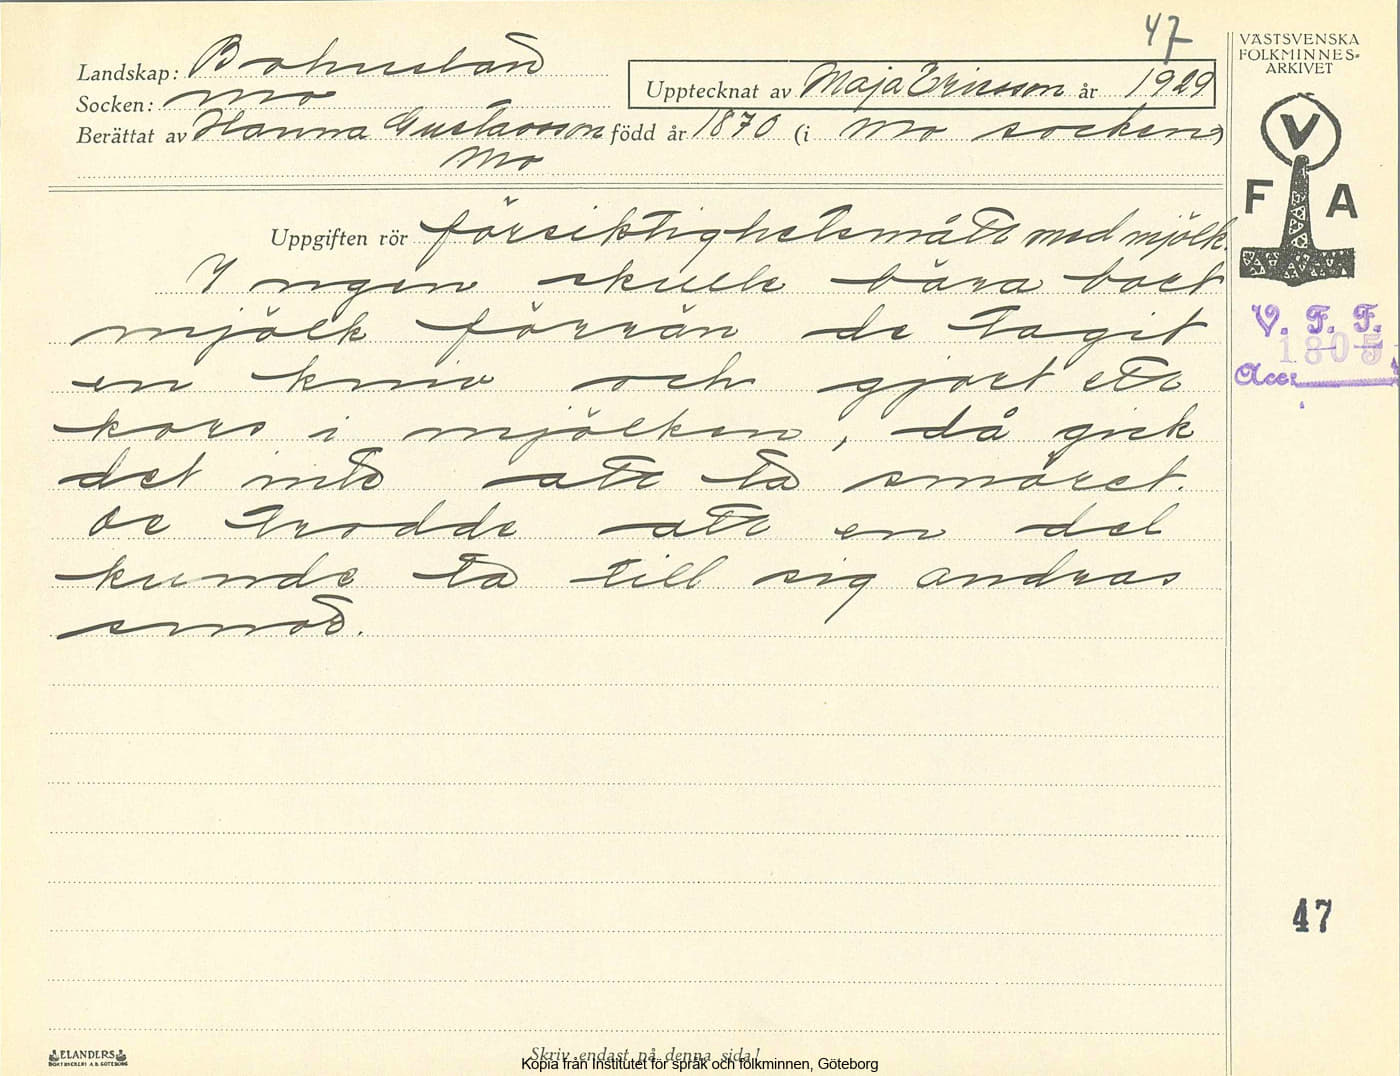 47
VÄSTSVENSKA
FOLKMINNES-
ARKIVET
Landskap: Bohuslän
Socken: Mo
Upptecknat av Maja Ericsson år 1929
Berättat av Hanna Gustavsson född år 1870 (i Mo socken)
Mo
V
F A
Uppgiften rör försiktighetsmått med mjölk.
Ingen skulle bära bort
mjölk förrän de tagit
en kniv och gjort ett
kors i mjölken, då gick
det inte att ta smöret.
De trodde att en del
kunde ta till sig andras
smör.
V. F. F.
1805
Acc:
47
ELANDERS
BOKTRYCKERI A.B. GÖTEBORG
Skriv endast på denna sida!
Kopia från Institutet för språk och folkminnen, Göteborg